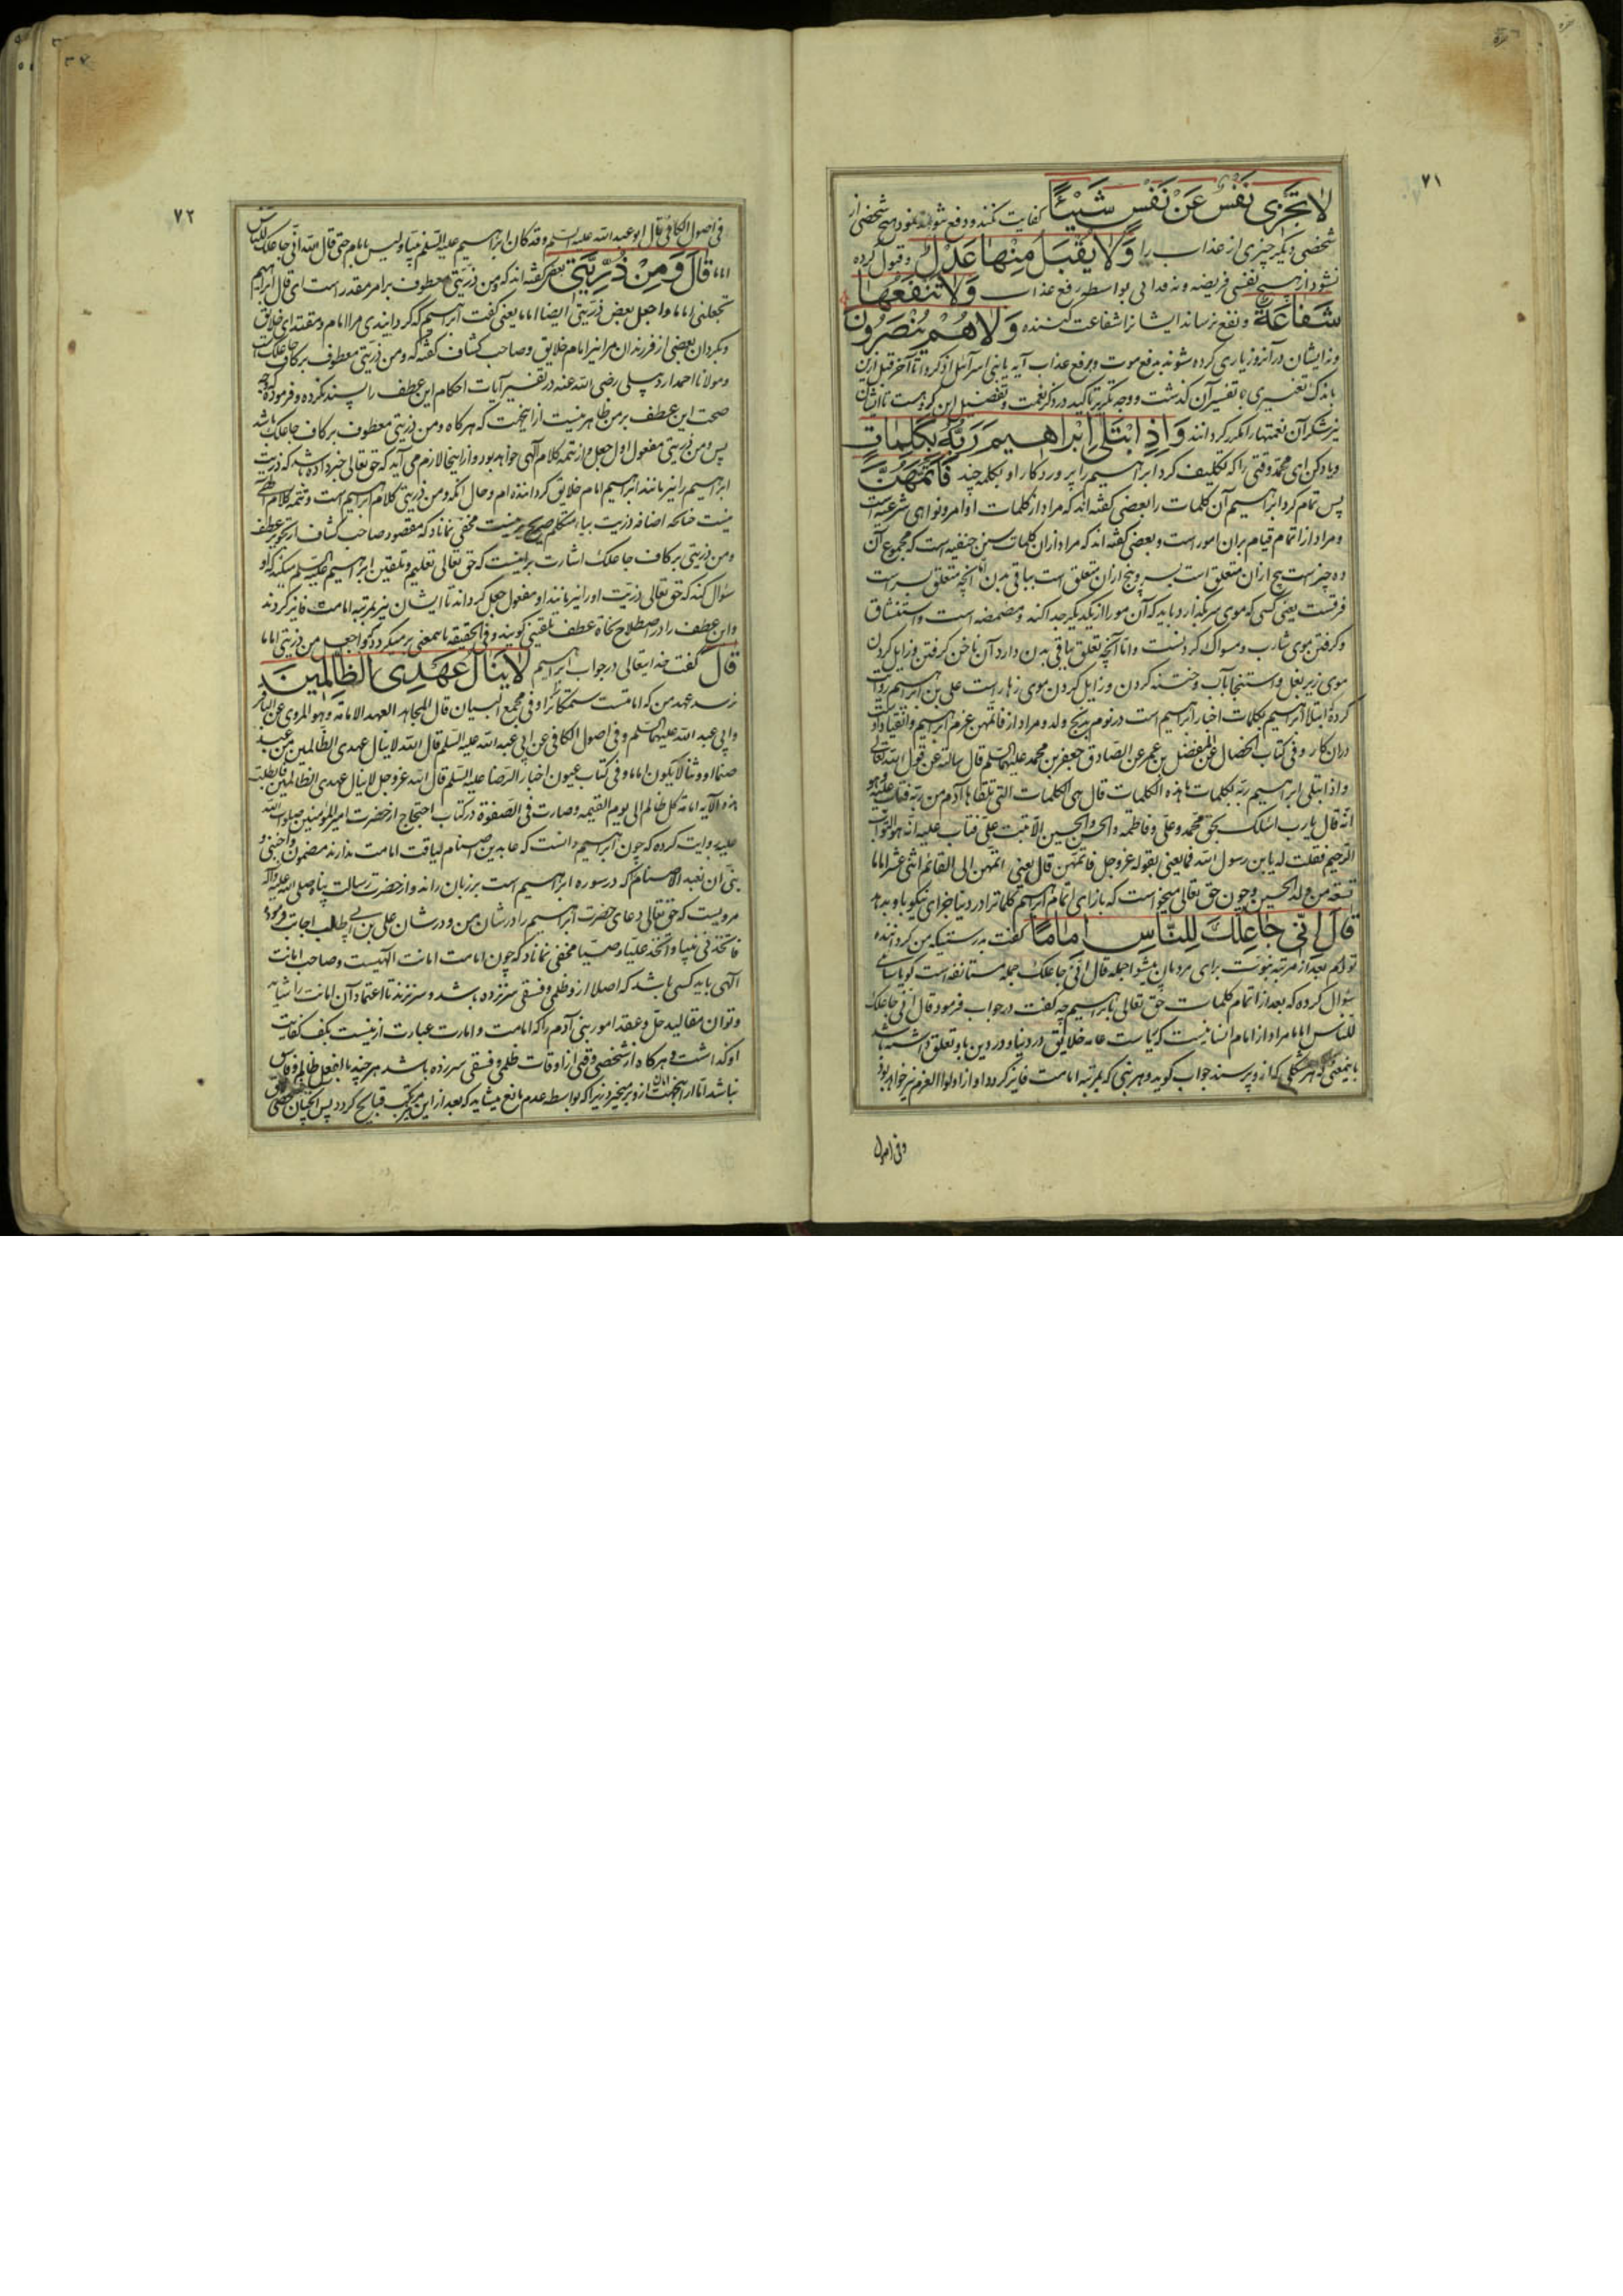 ۷۱
لا تَجْزِی نَفْسٌ عَنْ نَفْسٍ شَیْئاً کفایت نکند و دفع نتواند نمود هیچ شخصی از
شخصی دیگر چیزی از عذاب را وَلا یُقْبَلُ مِنْها عَدْلٌ و قبول کرده
نشود از هیچ نفسی فریضه و نه فدایی بواسطه رفع عذاب وَلا تَنْفَعُها
شَفاعَةٌ و نفع نرساند ایشانرا شفاعت کننده وَلا هُمْ یُنْصَرُونَ
و نه ایشان در آنروز یاری کرده شوند بدفع موت و برفع عذاب آیه یا بنی اسرآئیل اذکروا تا آخر قبل ازین
باندک تغییری با تفسیر آن گذشت و وجه تکریر تاکید در ذکر نعمت و تفضیل این گروهست تا ایشان
نیز شکر آن نعمتها را مکرر گردانند وَاِذِ ابْتَلی اِبْراهیمَ رَبُّهُ بِکَلِماتٍ
و یاد کن ای محمد وقتی را که تکلیف کرد ابراهیم را پروردگار او بکلمه چند فَاَتَمَّهُنَّ
پس تمام کرد ابراهیم آن کلمات را بعضی گفته اند که مراد از کلمات اوامر و نواهی شرعیه است
و مراد از اتمام قیام بران امور است و بعضی گفته اند که مراد از ان کلمات سنن حنفیه است که مجموع آن
ده چیز است پنج از ان متعلق است بسر و پنج از ان متعلق است بباقی بدن اما آنچه متعلق بسر است
فرقست یعنی کسی که موی سر نگذارد باید که آن مو را از یکدیگر جدا کند و مضمضه است و استنشاق
و گرفتن موی شارب و مسواک کردنست و اما آنچه تعلق بباقی بدن دارد آن ناخن گرفتن و زایل کردن
موی زیر بغل و استنجا بآب و ختنه کردن و زایل کردن موی زهار است علی بن ابراهیم روایت
کرده ابتلا ابراهیم بکلمات اخبار ابراهیم است در نوم بذبح ولد و مراد از فاتمهن عزم ابراهیم و انقیاد اوست
دران کار و فی کتاب الخصال عن المفضل بن عمر عن الصادق جعفر بن محمد علیهما السلم قال سالته عن قول الله تعالی
و اذ ابتلی ابراهیم ربه بکلمات ما هذه الکلمات قال هی الکلمات التی تلقاها آدم من ربه فتاب علیه و هو
انه قال یا رب اسئلک بحق محمد و علی و فاطمه و الحسن و الحسین الا تبت علی فتاب علیه انه هو التواب
الرحیم فقلت له یا بن رسول الله فما یعنی بقوله عز و جل فاتمهن قال یعنی اتمهن الی القائم اثنی عشر اماما
تسعة من ولد الحسین و چون حق تعالی میخواست که بازای اتمام ابراهیم کلمات را در دنیا جزای نیکو باو بدهد
قالَ اِنّی جاعِلُکَ لِلنّاسِ اِماماً گفت بدرستیکه من گرداننده
توام بعد از مرتبه نبوت برای مردمان پیشوا جمله قال انی جاعلک جمله مستانفه است گویا سائلی
سؤال کرده که بعد از اتمام کلمات حق تعالی با ابراهیم چه گفت در جواب فرمود قال انی جاعلک
للناس اماما مراد از امام انسانیست که ریاست عامه خلایق در دنیا و در دین باو تعلق داشته باشد
بایمعنی که هر مشکلی که از و پرسند جواب گوید و هر نبی که بمرتبه امامت فایز گردد او از اولوا العزم نیز خواهد بود
و فی اصول
۷۲
فی اصول الکافی قال ابو عبد الله علیه السلم و قد کان ابراهیم علیه السلم نبیا و لیس بامام حتی قال الله انی جاعلک للناس
اماما قالَ وَمِنْ ذُرِّیَّتی بعضی گفته اند که و من ذریتی معطوف بر امر مقدر است ای قال ابراهیم
تجعلنی اماما و اجعل بعض ذریتی ایضا اماما یعنی گفت ابراهیم که گردانیدی مرا امام و مقتدای خلایق
و بگردان بعضی از فرزندان مرا نیز امام خلایق و صاحب کشاف گفته که و من ذریتی معطوف بر کاف جاعلک است
و مولانا احمد اردبیلی رضی الله عنه در تفسیر آیات احکام این عطف را پسند نکرده و فرموده که وجه
صحت این عطف بر من ظاهر نیست از اینجهت که هر گاه و من ذریتی معطوف بر کاف جاعلک باشد
پس و من ذریتی مفعول اول جعل و از تتمه کلام آلهی خواهد بود و از اینجا لازم می آید که حق تعالی خبر داده باشد که ذریت
ابراهیم را نیز مانند ابراهیم امام خلایق گردانیده ام و حال آنکه و من ذریتی کلام ابراهیم است و تتمه کلام آلهی
نیست چنانکه اضافه ذریت بیاء متکلم صریح نیست مخفی نماناد که مقصود صاحب کشاف از تجویز عطف
و من ذریتی بر کاف جاعلک اشارت بر اینست که حق تعالی تعلیم و تلقین ابراهیم علیه السلم میکند که او
سؤال کند که حق تعالی ذریت او را نیز مانند او مفعول جعل گرداند تا ایشان نیز بمرتبه امامت فایز گردند
و این عطف را در اصطلاح نحاة عطف تلقینی گویند و فی الحقیقه باینمعنی بر میگردد که و اجعل من ذریتی اماما
قالَ گفت خدایتعالی در جواب ابراهیم لا یَنالُ عَهْدِی الظّالِمینَ
نرسد عهد من که امامتست ستمکارانرا و فی مجمع البیان قال المجاهد العهد الامامة و هو المروی عن الباقر
و ابی عبد الله علیهما السلم و فی اصول الکافی عن ابی عبد الله علیه السلم قال الله لا ینال عهدی الظالمین من عبد
صنما او وثنا لا یکون اماما و فی کتاب عیون اخبار الرضا علیه السلم قال الله عز و جل لا ینال عهدی الظالمین فابطلت
هذه الآیه امامة کل ظالم الی یوم القیمه و صارت فی الصفوة در کتاب احتجاج از حضرت امیر المؤمنین صلوات الله
علیه روایت کرده که چون ابراهیم دانست که عابدین اصنام لیاقت امامت ندارند مضمون و اجنبنی و
بنی ان نعبد الاصنام که در سوره ابراهیم است بر زبان راند و از حضرت رسالت پناه صلی الله علیه و آله
مرویست که حق تعالی دعای حضرت ابراهیم را در شان من و در شان علی بن ابی طالب اجابت فرمود
فاتخذنی نبیا و اتخذ علیا وصیا مخفی نماناد که چون امامت امانت آلهیست و صاحب امانت
آلهی باید کسی باشد که اصلا از و ظلمی و فسقی سر نزده باشد و سر نزند تا اعتماد آن امانت را شاید
و توان مقالید حل و عقد امور بنی آدم را که امامت و امارت عبارت ازینست بکف کفایت
او گذاشت و هر گاه از شخصی وقتی از اوقات ظلمی و فسقی سر زده باشد هر چند بالفعل ظالم و فاسق
نباشد اما امان ازو بر میخیزد زیرا که بواسطه عدم مانع میشاید که بعد از این مرتکب قبایح گردد پس آنچنان شخصی